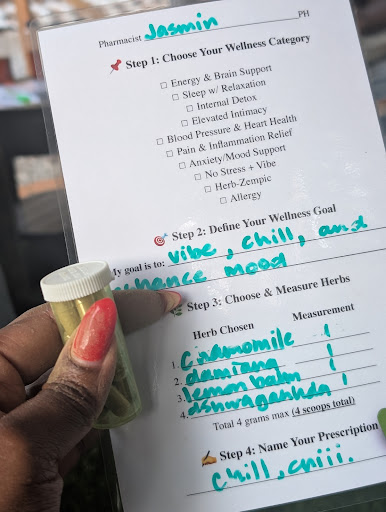 Pharmacist Jasmin PH
📌 Step 1: Choose Your Wellness Category
☐ Energy & Brain Support
☐ Sleep w/ Relaxation
☐ Internal Detox
☐ Elevated Intimacy
☐ Blood Pressure & Heart Health
☐ Pain & Inflammation Relief
☐ Anxiety/Mood Support
☐ No Stress + Vibe
☐ Herb-Zempic
☐ Allergy
🎯 Step 2: Define Your Wellness Goal
My goal is to: vibe, chill, and
enhance mood
🌿 Step 3: Choose & Measure Herbs
Herb Chosen Measurement
1. Chamomile 1
2. damiana 1
3. lemon balm 1
4. ashwagandha 1
Total 4 grams max (4 scoops total)
✍️ Step 4: Name Your Prescription
Chill, chiii.